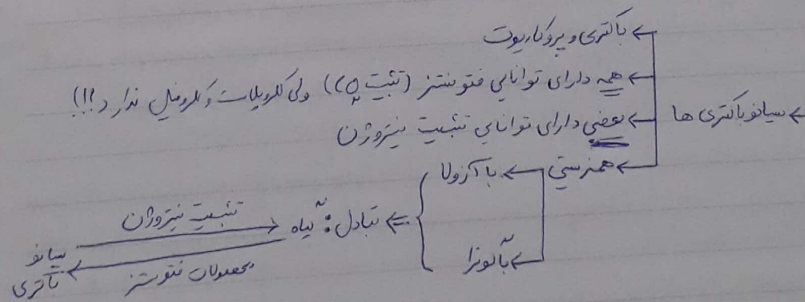 ← باکتری و پروکاریوت
← همه دارای توانایی فتوسنتز (تثبیت CO₂) ولی کلروپلاست و کلروفیل ندارد!!!
← سیانوباکتری ها
← بعضی دارای توانایی تثبیت نیتروژن
← همزیستی ← با آزولا
← با گونرا
← تبادل: گیاه
تثبیت نیتروژن
محصولات فتوسنتز
سیانو
باکتری